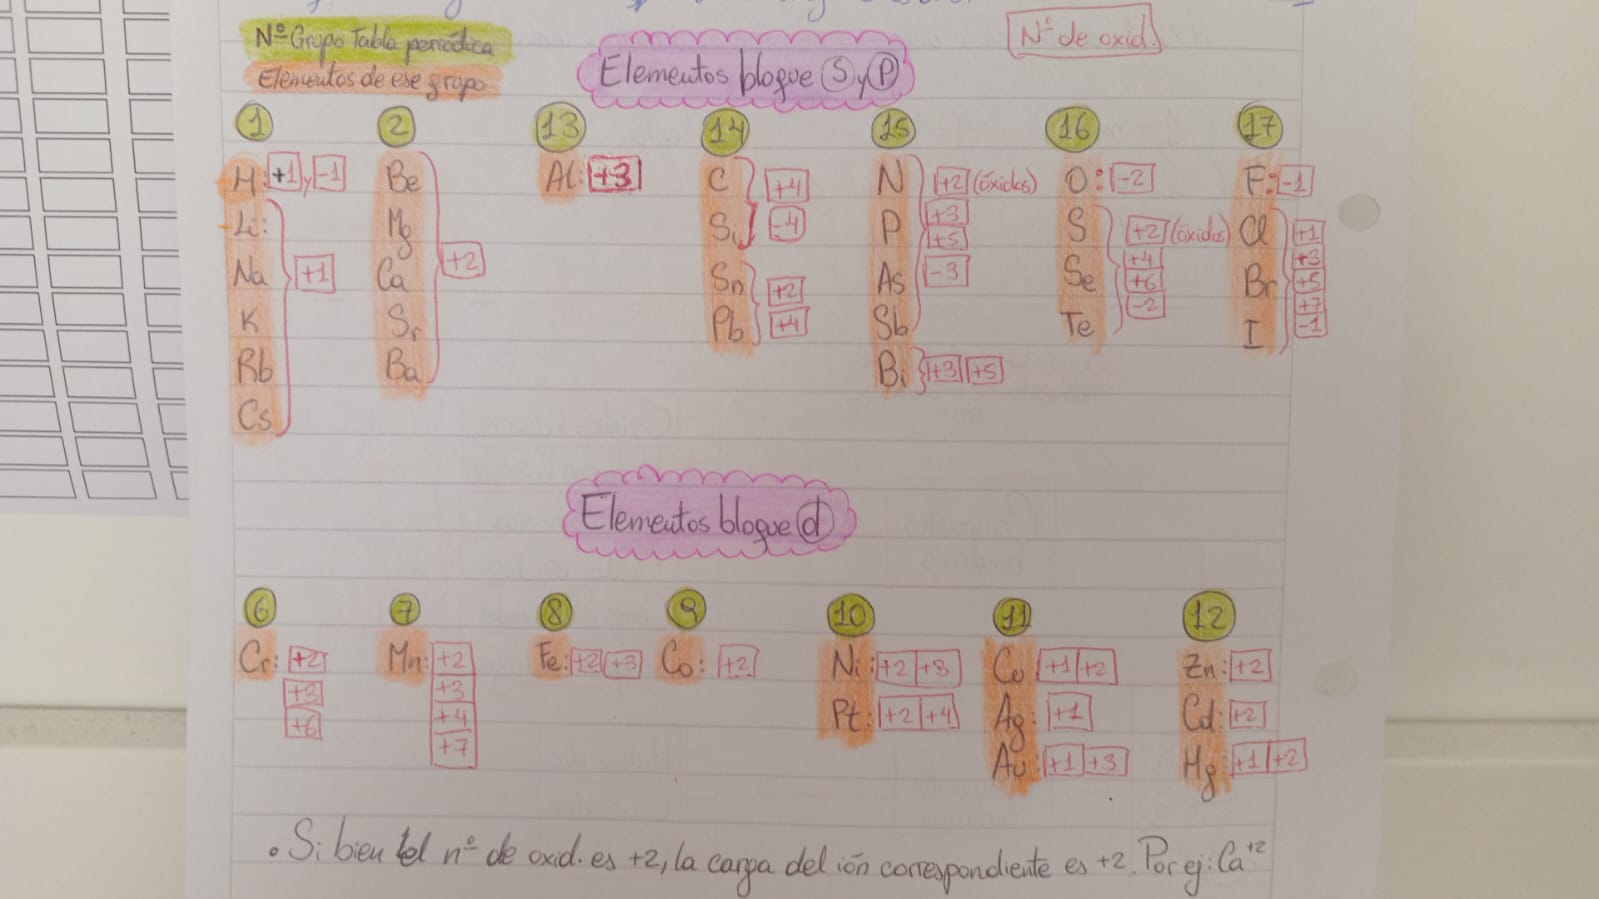 Nº Grupo Tabla periódica
Elementos de ese grupo
Elementos bloque S y P
Nº de oxid.
1 2 13 14 15 16 17
H: +1 y -1 Be Al: +3 C N +2 (óxidos) O: -2 F: -1
+4 +3
Li: Mg Si -4 P +5 S +2 (óxidos) Cl +1
+4 +3
Na +1 Ca +2 Sn +2 As -3 Se +6 Br +5
-2 +7
K Sr Pb +4 Sb Te I -1
Rb Ba Bi +3 +5
Cs
Elementos bloque d
6 7 8 9 10 11 12
Cr: +2 Mn: +2 Fe: +2 +3 Co: +2 Ni: +2 +3 Cu +1 +2 Zn: +2
+3 +3
+6 +4 Pt: +2 +4 Ag: +1 Cd: +2
+7 Au: +1 +3 Hg: +1 +2
• Si bien el nº de oxid. es +2, la carga del ión correspondiente es +2. Por ej: Ca+2